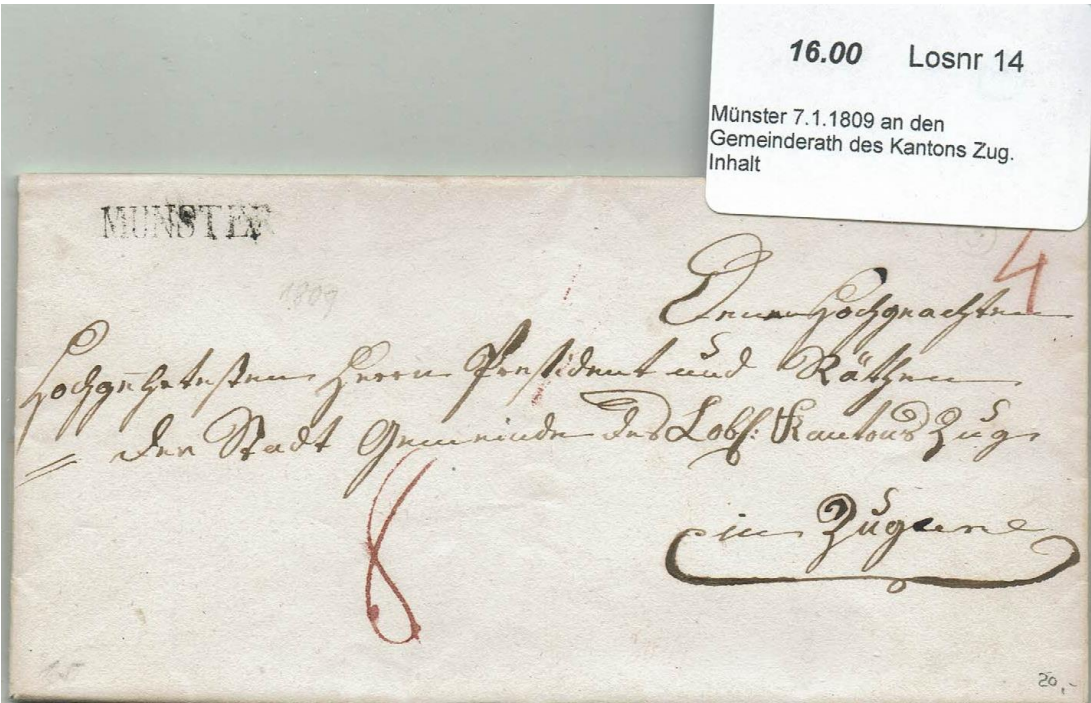 16.00 Losnr 14
Münster 7.1.1809 an den
Gemeinderath des Kantons Zug.
Inhalt
MUNSTER
4
1809
Denen Hochgeachten
Hochgeehrtesten Herrn President und Räthen
der Stadt Gemeinde des Lobl: Kantons Zug
in Zug
8
15
20,-